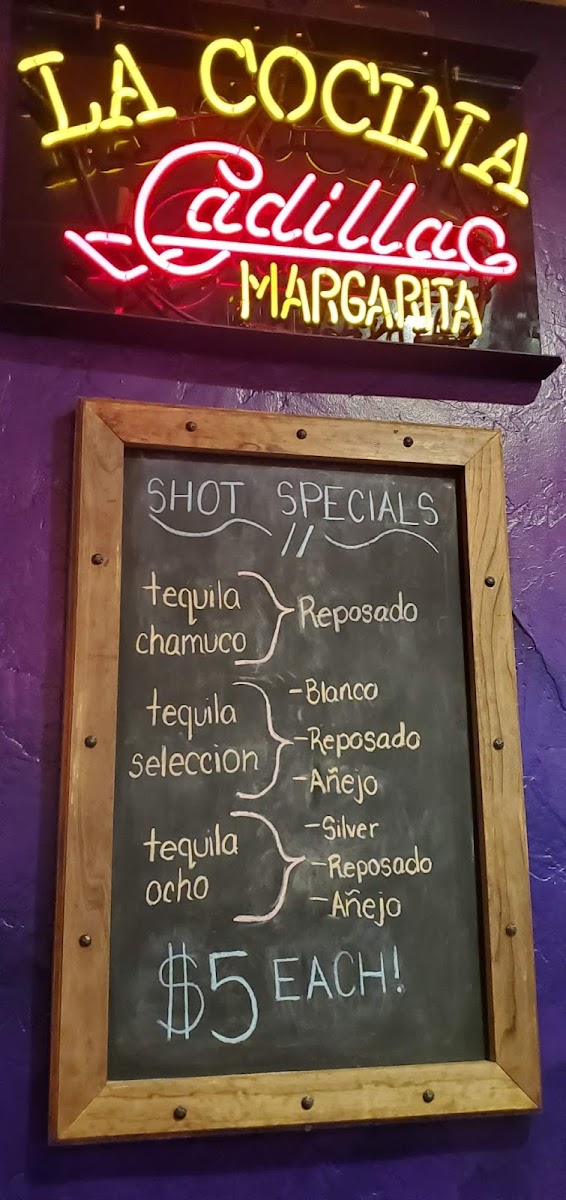 LA COCINA
Cadillac
MARGARITA
SHOT SPECIALS
tequila
chamuco
Reposado
tequila
seleccion
-Blanco
-Reposado
-Añejo
tequila
ocho
-Silver
-Reposado
-Añejo
$5 EACH!